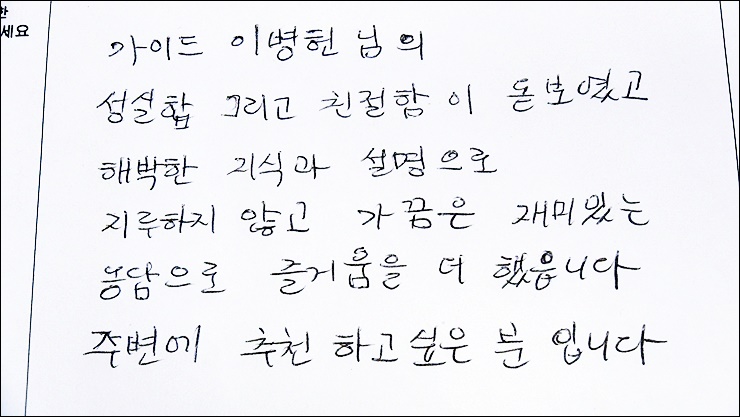 한
세요
가이드 이병헌 님의
성실합 그리고 친절함이 돋보였고
해박한 지식과 설명으로
지루하지 않고 가끔은 재미있는
농담으로 즐거움을 더 했읍니다
주변에 추천 하고싶은 분 입니다